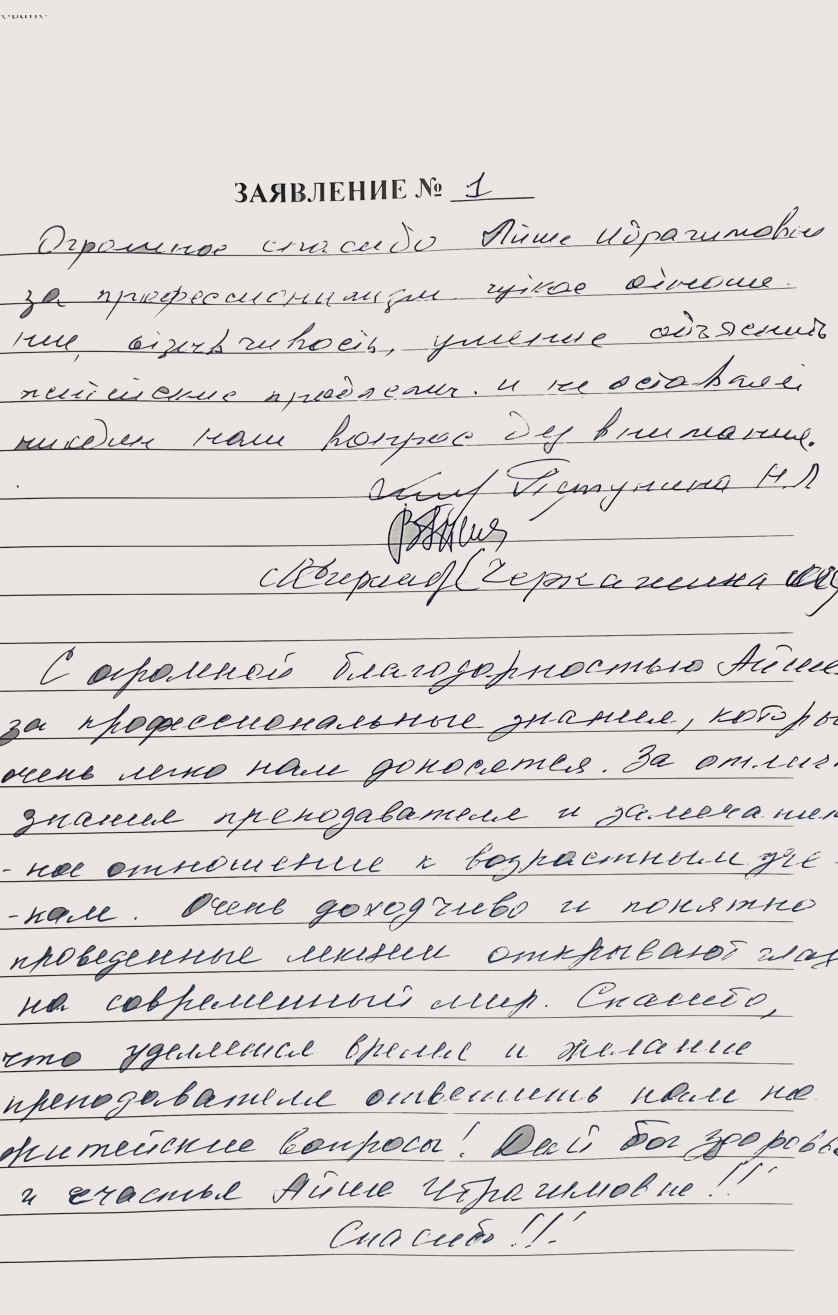 ЗАЯВЛЕНИЕ № 1
Огромное спасибо Айше Ибрагимовне
за профессионализм чуткое отноше-
ние, отзывчивость, умение объяснить
житейские проблемы. и не оставляет
ни один наш вопрос без внимания.
Пстунина Н.Л
(Черкашина
С огромной благодарностью Айше
за профессиональные знания, которы
очень легко нам доносятся. За отлич
знания преподавателя и замечатель
-ное отношение к возрастным уче
-кам. Очень доходчиво и понятно
проведенные лекции открывают глаз
на современный мир. Спасибо,
что уделяется время и желание
преподавателя ответить нам на
житейские вопросы! Дай бог здоровья
и счастья Айше Ибрагимовне!!
Спасибо!!!